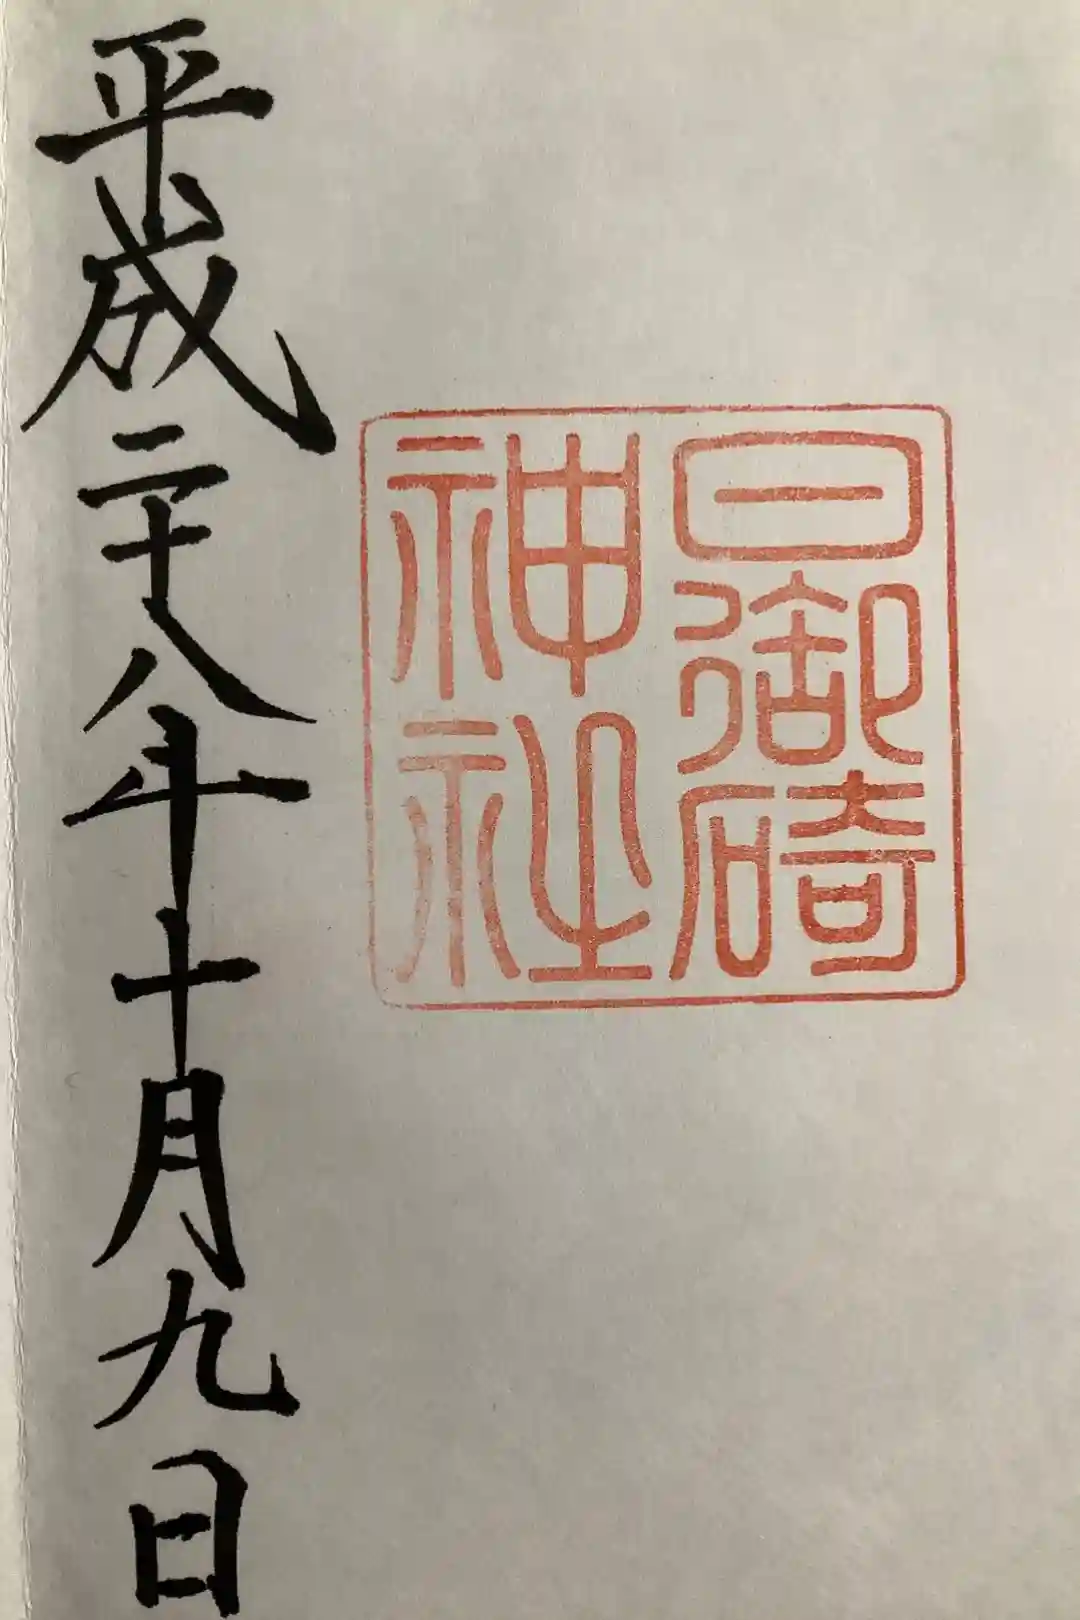 日御碕
神社
平成二十八年十月九日